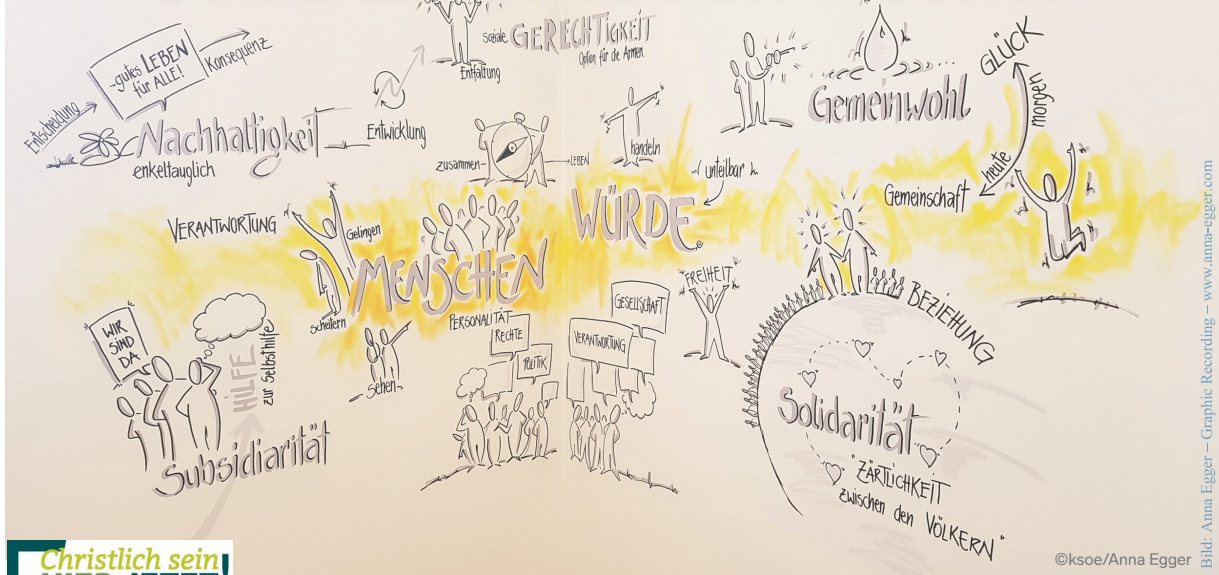 Entscheidung
~gutes LEBEN
für ALLE!
Konsequenz
Nachhaltigkeit
enkeltauglich
Entwicklung
Entfaltung
soziale GERECHTigKEiT
Option für die Armen
zusammen
LEBEN
handeln
unteilbar
Gemeinwohl
GLÜCK
morgen
heute
Gemeinschaft
VERANTWORTUNG
Gelingen
Scheitern
MENSCHEN
WÜRDE
Sehen
PERSONALITÄT
RECHTE
POLITIK
VERANTWORTUNG
GESELLSCHAFT
FREIHEIT
WIR
SIND
DA
HILFE
zur Selbsthilfe
Subsidiarität
BEZIEHUNG
Solidarität
"ZÄRTLICHKEIT
zwischen den VÖLKERN"
Christlich sein
©ksoe/Anna Egger
Bild: Anna Egger – Graphic Recording – www.anna-egger.com